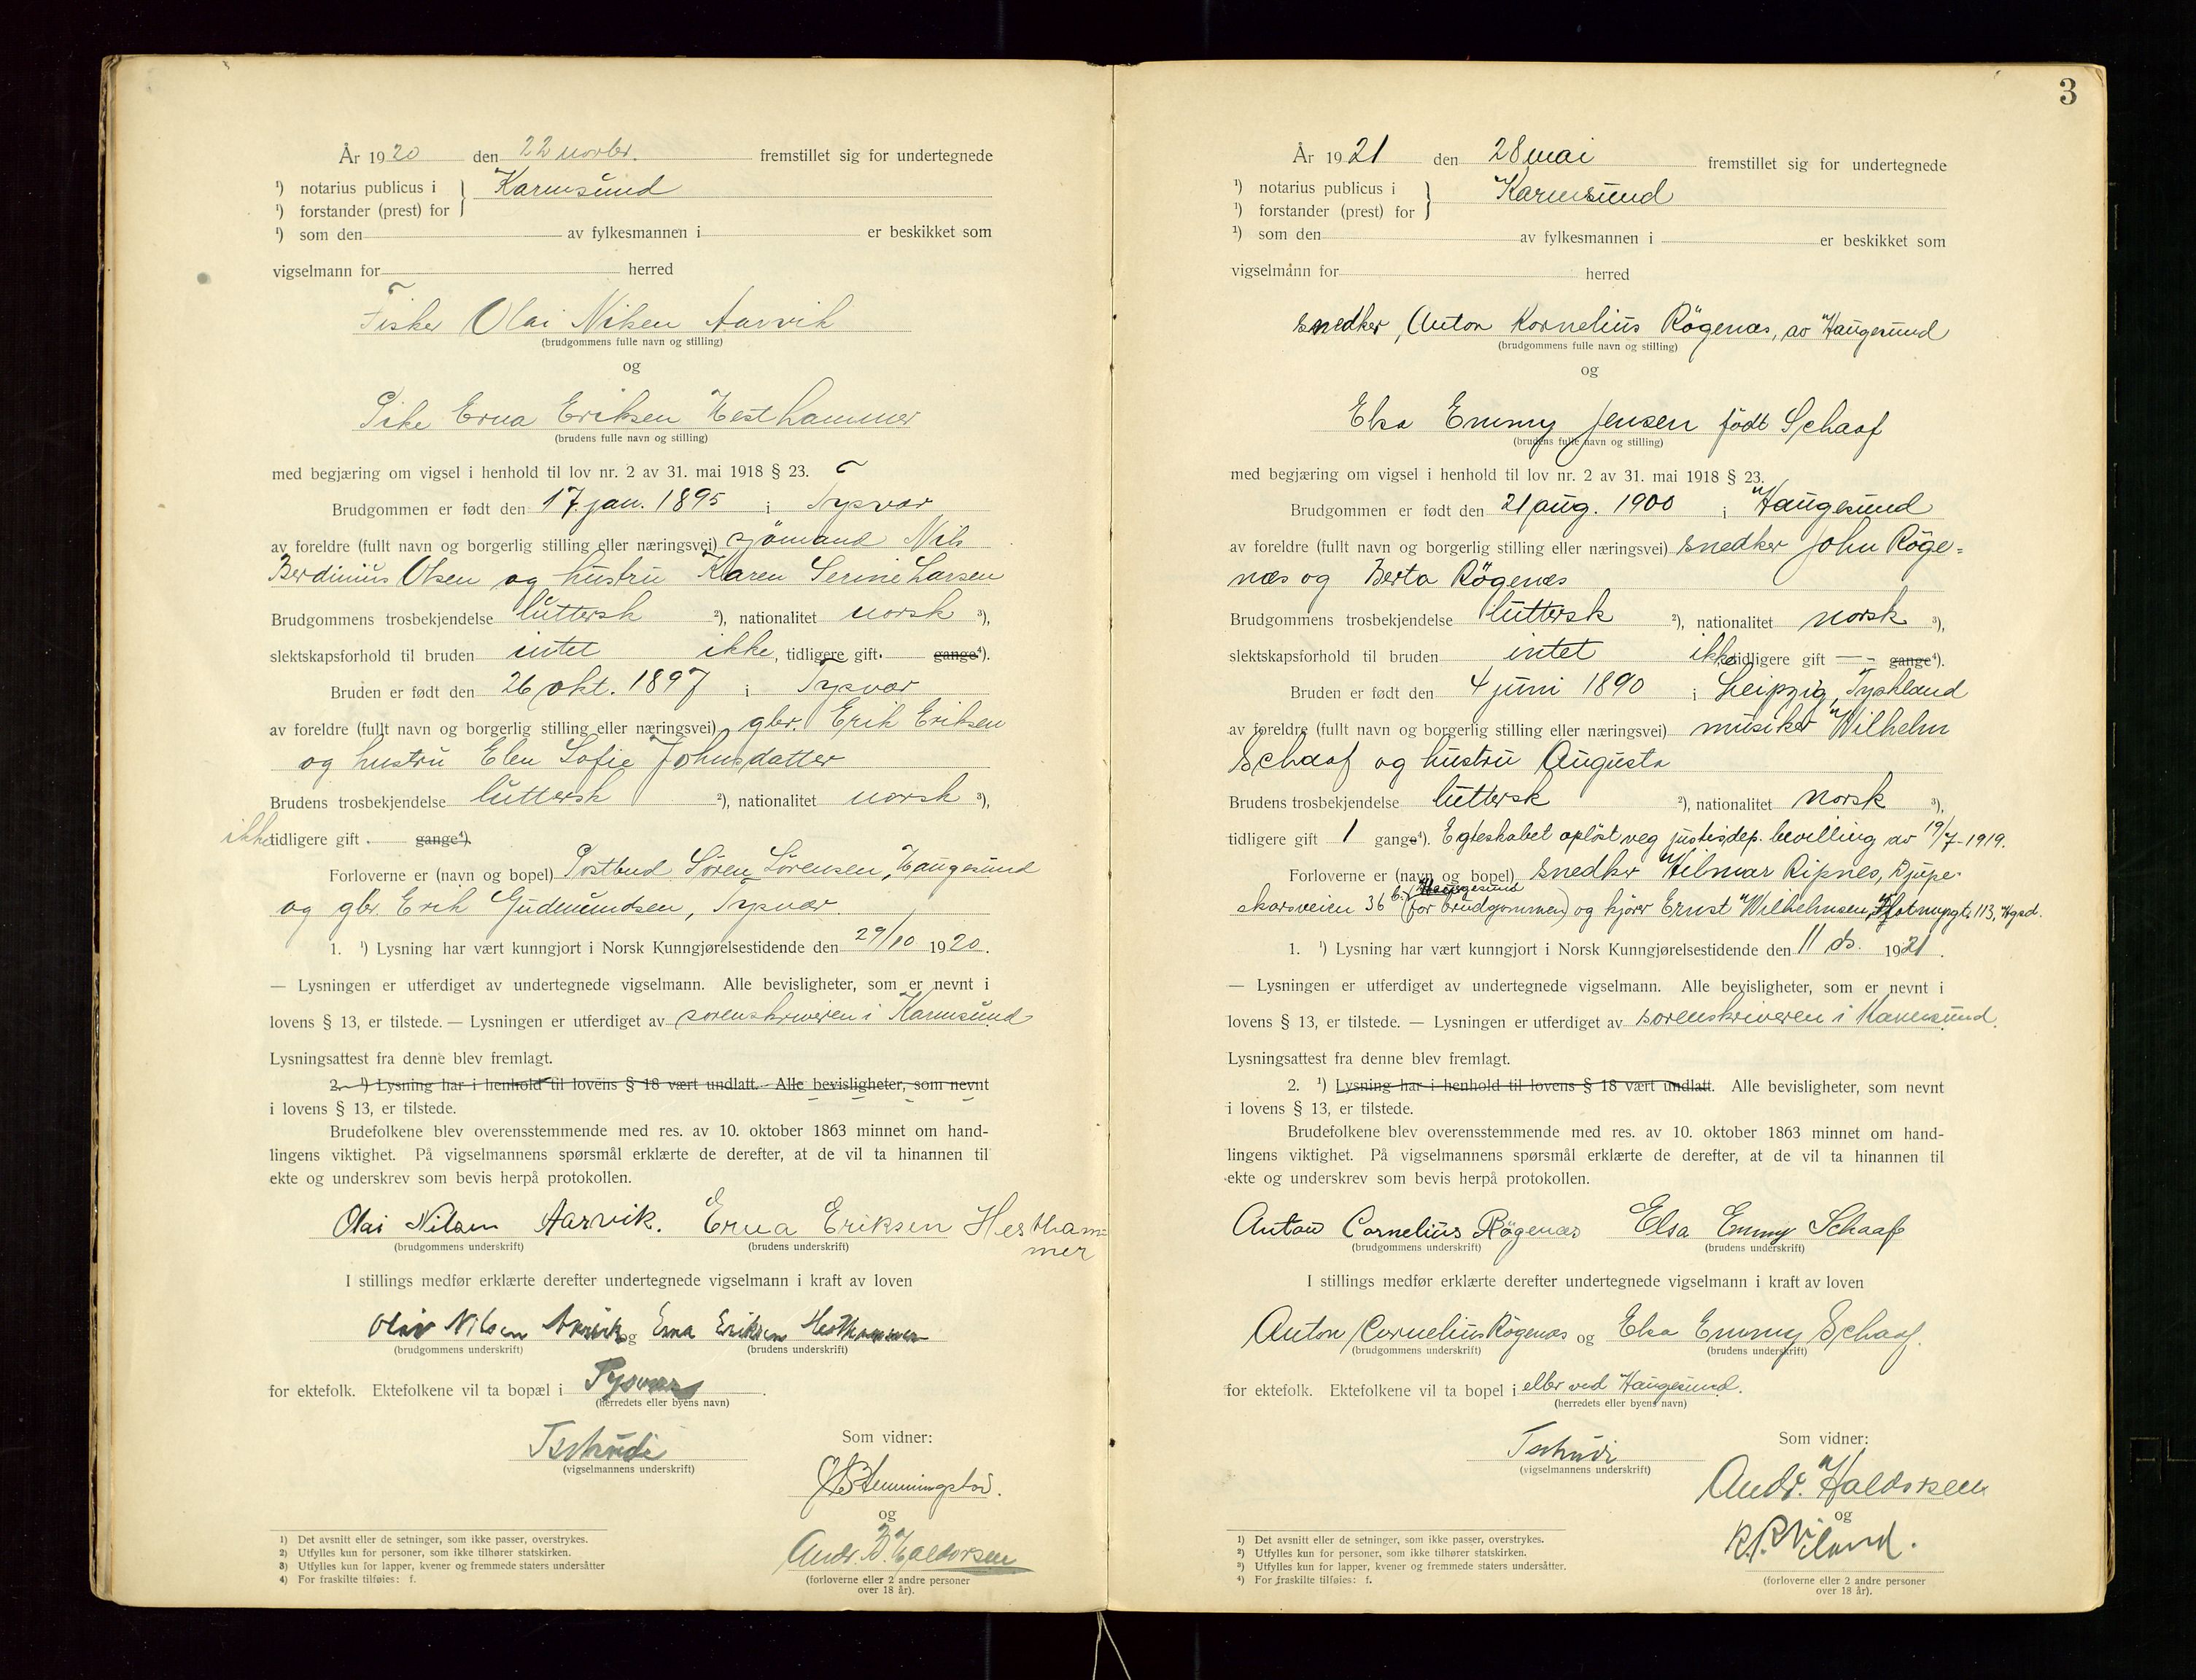 År 1920 den 22 novbr. fremstillet sig for undertegnede
¹) notarius publicus i } Karmsund
¹) forstander (prest) for
¹) som den av fylkesmannen i er beskikket som
vigselmann for herred
Fisker Olai Nilsen Aarvik
(brudgommens fulle navn og stilling)
og
Pike Erna Eriksen Hesthammer
(brudens fulle navn og stilling)
med begjæring om vigsel i henhold til lov nr. 2 av 31. mai 1918 § 23.
Brudgommen er født den 17. jan. 1895 i Tysvær
av foreldre (fullt navn og borgerlig stilling eller næringsvei) sjömand Nils
Berdinius Olsen og hustru Karen Serine Larsen
Brudgommens trosbekjendelse luttersk ²), nationalitet norsk ³),
slektskapsforhold til bruden intet ikke, tidligere gift. gange⁴).
Bruden er født den 26 okt. 1897 i Tysvær
av foreldre (fullt navn og borgerlig stilling eller næringsvei) gbr. Erik Eriksen
og hustru Elen Sofie Johnsdatter
Brudens trosbekjendelse luttersk ²), nationalitet norsk ³),
ikke tidligere gift. gange⁴).
Forloverne er (navn og bopel) Postbud Sören Sörensen, Haugesund
og gbr. Erik Gudmundsen, Tysvær.
1. ¹) Lysning har vært kunngjort i Norsk Kunngjørelsestidende den 29/10 1920.
— Lysningen er utferdiget av undertegnede vigselmann. Alle bevisligheter, som er nevnt i
lovens § 13, er tilstede. — Lysningen er utferdiget av sorenskriveren i Karmsund
Lysningsattest fra denne blev fremlagt.
2. ¹) Lysning har i henhold til lovens § 18 vært undlatt. Alle bevisligheter, som nevnt
i lovens § 13, er tilstede.
Brudefolkene blev overensstemmende med res. av 10. oktober 1863 minnet om hand-
lingens viktighet. På vigselmannens spørsmål erklærte de derefter, at de vil ta hinannen til
ekte og underskrev som bevis herpå protokollen.
Olai Nilsen Aarvik. Erna Eriksen Hestham=
mer
(brudgommens underskrift) (brudens underskrift)
I stillings medfør erklærte derefter undertegnede vigselmann i kraft av loven
Olai Nilsen Aarvik og Erna Eriksen Hesthammer
(brudgommens underskrift) (brudens underskrift)
for ektefolk. Ektefolkene vil ta bopæl i Tysvær.
(herredets eller byens navn)
Tschudi
(vigselmannens underskrift)
Som vidner:
og
Andr. B. Haldorsen
(forloverne eller 2 andre personer
over 18 år).
1) Det avsnitt eller de setninger, som ikke passer, overstrykes.
2) Utfylles kun for personer, som ikke tilhører statskirken.
3) Utfylles kun for lapper, kvener og fremmede staters undersåtter
4) For fraskilte tilføies: f.
3
År 1921 den 28 mai fremstillet sig for undertegnede
¹) notarius publicus i } Karmsund
¹) forstander (prest) for
¹) som den av fylkesmannen i er beskikket som
vigselmann for herred
snedker, Anton Kornelius Rögenæs, av Haugesund
(brudgommens fulle navn og stilling)
og
Elsa Emmy Jensen födt Schaaf
(brudens fulle navn og stilling)
med begjæring om vigsel i henhold til lov nr. 2 av 31. mai 1918 § 23.
Brudgommen er født den 21 aug. 1900 i Haugesund
av foreldre (fullt navn og borgerlig stilling eller næringsvei) snedker John Röge=
næs og Berta Rögenæs
Brudgommens trosbekjendelse luttersk ²), nationalitet norsk ³),
slektskapsforhold til bruden intet ikke tidligere gift — - gange⁴).
Bruden er født den 4 juni 1890 i Leipzig, Tyskland
av foreldre (fullt navn og borgerlig stilling eller næringsvei) musiker Wilhelm
Schaaf og hustru Augusta
Brudens trosbekjendelse luttersk ²), nationalitet norsk ³),
tidligere gift 1 gange⁴). Egteskabet oplöst veg justisdep. bevilling av 19/7-1919.
Forloverne er (navn og bopel) snedker Hilmar Ripnes, Djupe-
skarsveien 36 b. (for brudgommen) og kjører Ernst Wilhelmsen, Flotmyrgt. 113, Hgsd.
1. ¹) Lysning har vært kunngjort i Norsk Kunngjørelsestidende den 11 ds. 1921.
— Lysningen er utferdiget av undertegnede vigselmann. Alle bevisligheter, som er nevnt i
lovens § 13, er tilstede. — Lysningen er utferdiget av sorenskriveren i Karmsund.
Lysningsattest fra denne blev fremlagt.
2. ¹) Lysning har i henhold til lovens § 18 vært undlatt. Alle bevisligheter, som nevnt
i lovens § 13, er tilstede.
Brudefolkene blev overensstemmende med res. av 10. oktober 1863 minnet om hand-
lingens viktighet. På vigselmannens spørsmål erklærte de derefter, at de vil ta hinannen til
ekte og underskrev som bevis herpå protokollen.
Anton Cornelius Rögenæs Elsa Emmy Schaaf
(brudgommens underskrift) (brudens underskrift)
I stillings medfør erklærte derefter undertegnede vigselmann i kraft av loven
Anton Cornelius Rögenæs og Elsa Emmy Schaaf.
(brudgommens underskrift) (brudens underskrift)
for ektefolk. Ektefolkene vil ta bopel i eller ved Haugesund.
(herredets eller byens navn)
Tschudi
(vigselmannens underskrift)
Som vidner:
Andr. Haldorsen
og
(forloverne eller 2 andre personer
over 18 år).
1) Det avsnitt eller de setninger, som ikke passer, overstrykes.
2) Utfylles kun for personer, som ikke tilhører statskirken.
3) Utfylles kun for lapper, kvener og fremmede staters undersåtter.
4) For fraskilte tilføies: f.